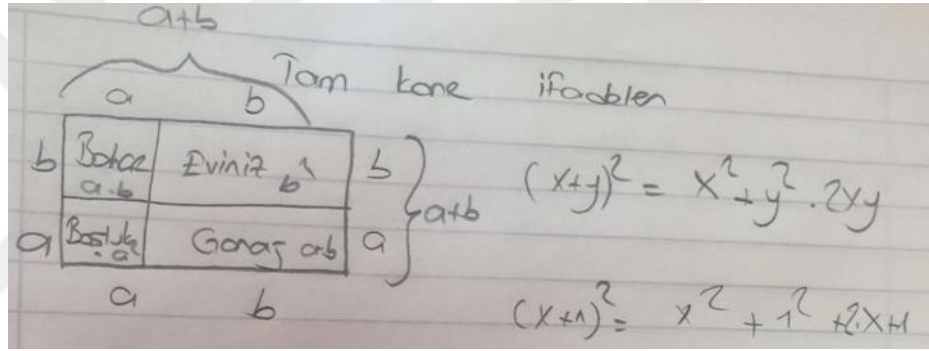 a+b
Tam kare ifadeler
a b
b Bahçe a.b Eviniz b² b
a Boşluk a² Garaj a.b a
a+b
a b
(x+y)² = x²+y².2xy
(x+1)² = x² + 1² +2.x.1